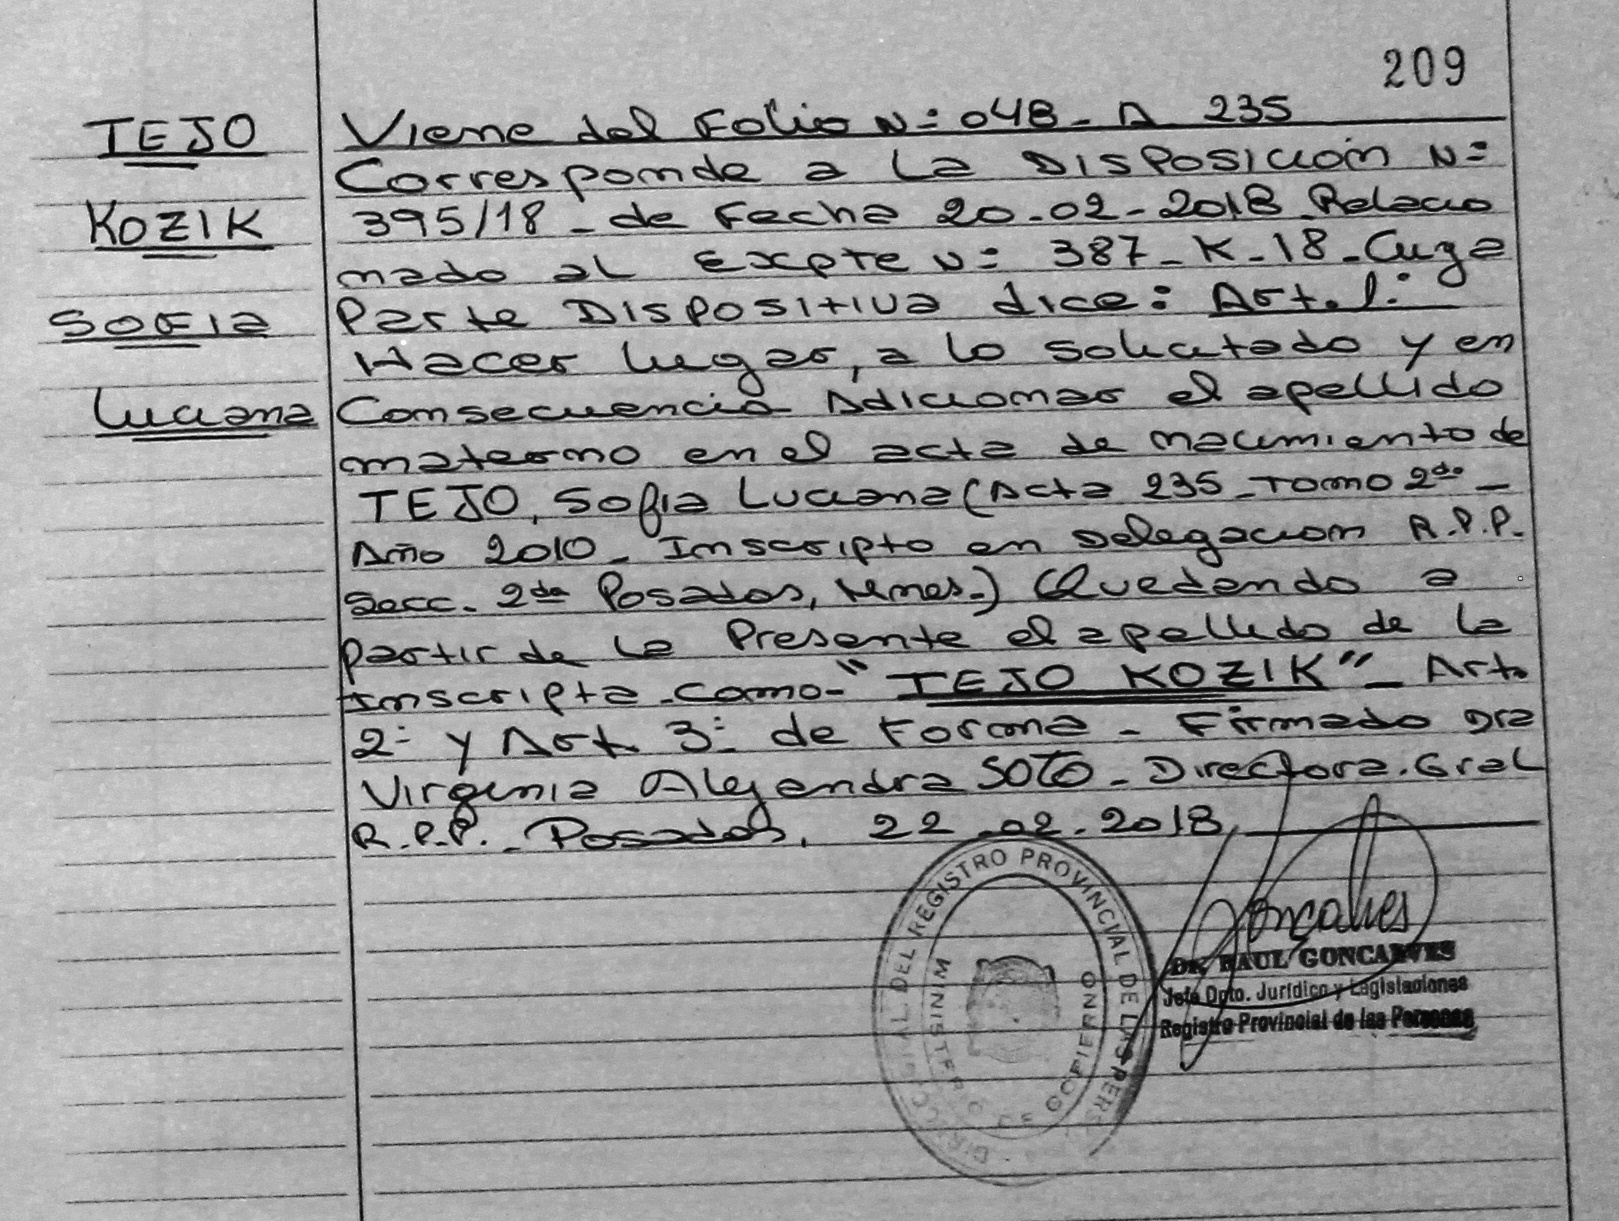 209
TEJO
KOZIK
SOFIA
Luciana
Viene del Folio Nº 048 - A 235
Corresponde a la Disposición Nº
395/18 - de Fecha 20-02-2018 Relacio
nado al Expte Nº 387-K-18-Cuya
Parte Dispositiva dice: Art. 1º
Hacer lugar, a lo solicitado y en
Consecuencia Adicionar el apellido
materno en el acta de nacimiento de
TEJO, Sofia Luciana (Acta 235 - Tomo 2do -
Año 2010 - Inscripto en Delegacion R.P.P.
Secc. 2da Posadas, Mnes.) Quedando a
partir de la Presente el apellido de la
Inscripta - como - "TEJO KOZIK" - Art.
2º y Art. 3º de Forma - Firmado Dra
Virginia Alejandra SOTO - Directora. Gral
R.P.P. - Posadas, 22-02-2018
DIRECC GRAL. DEL REGISTRO PROVINCIAL DE LAS PERS
MINISTERIO DE GOBIERNO
Goncalves
DR. RAUL GONCALVES
Jefe Dpto. Jurídico y Legislaciones
Registro Provincial de las Personas